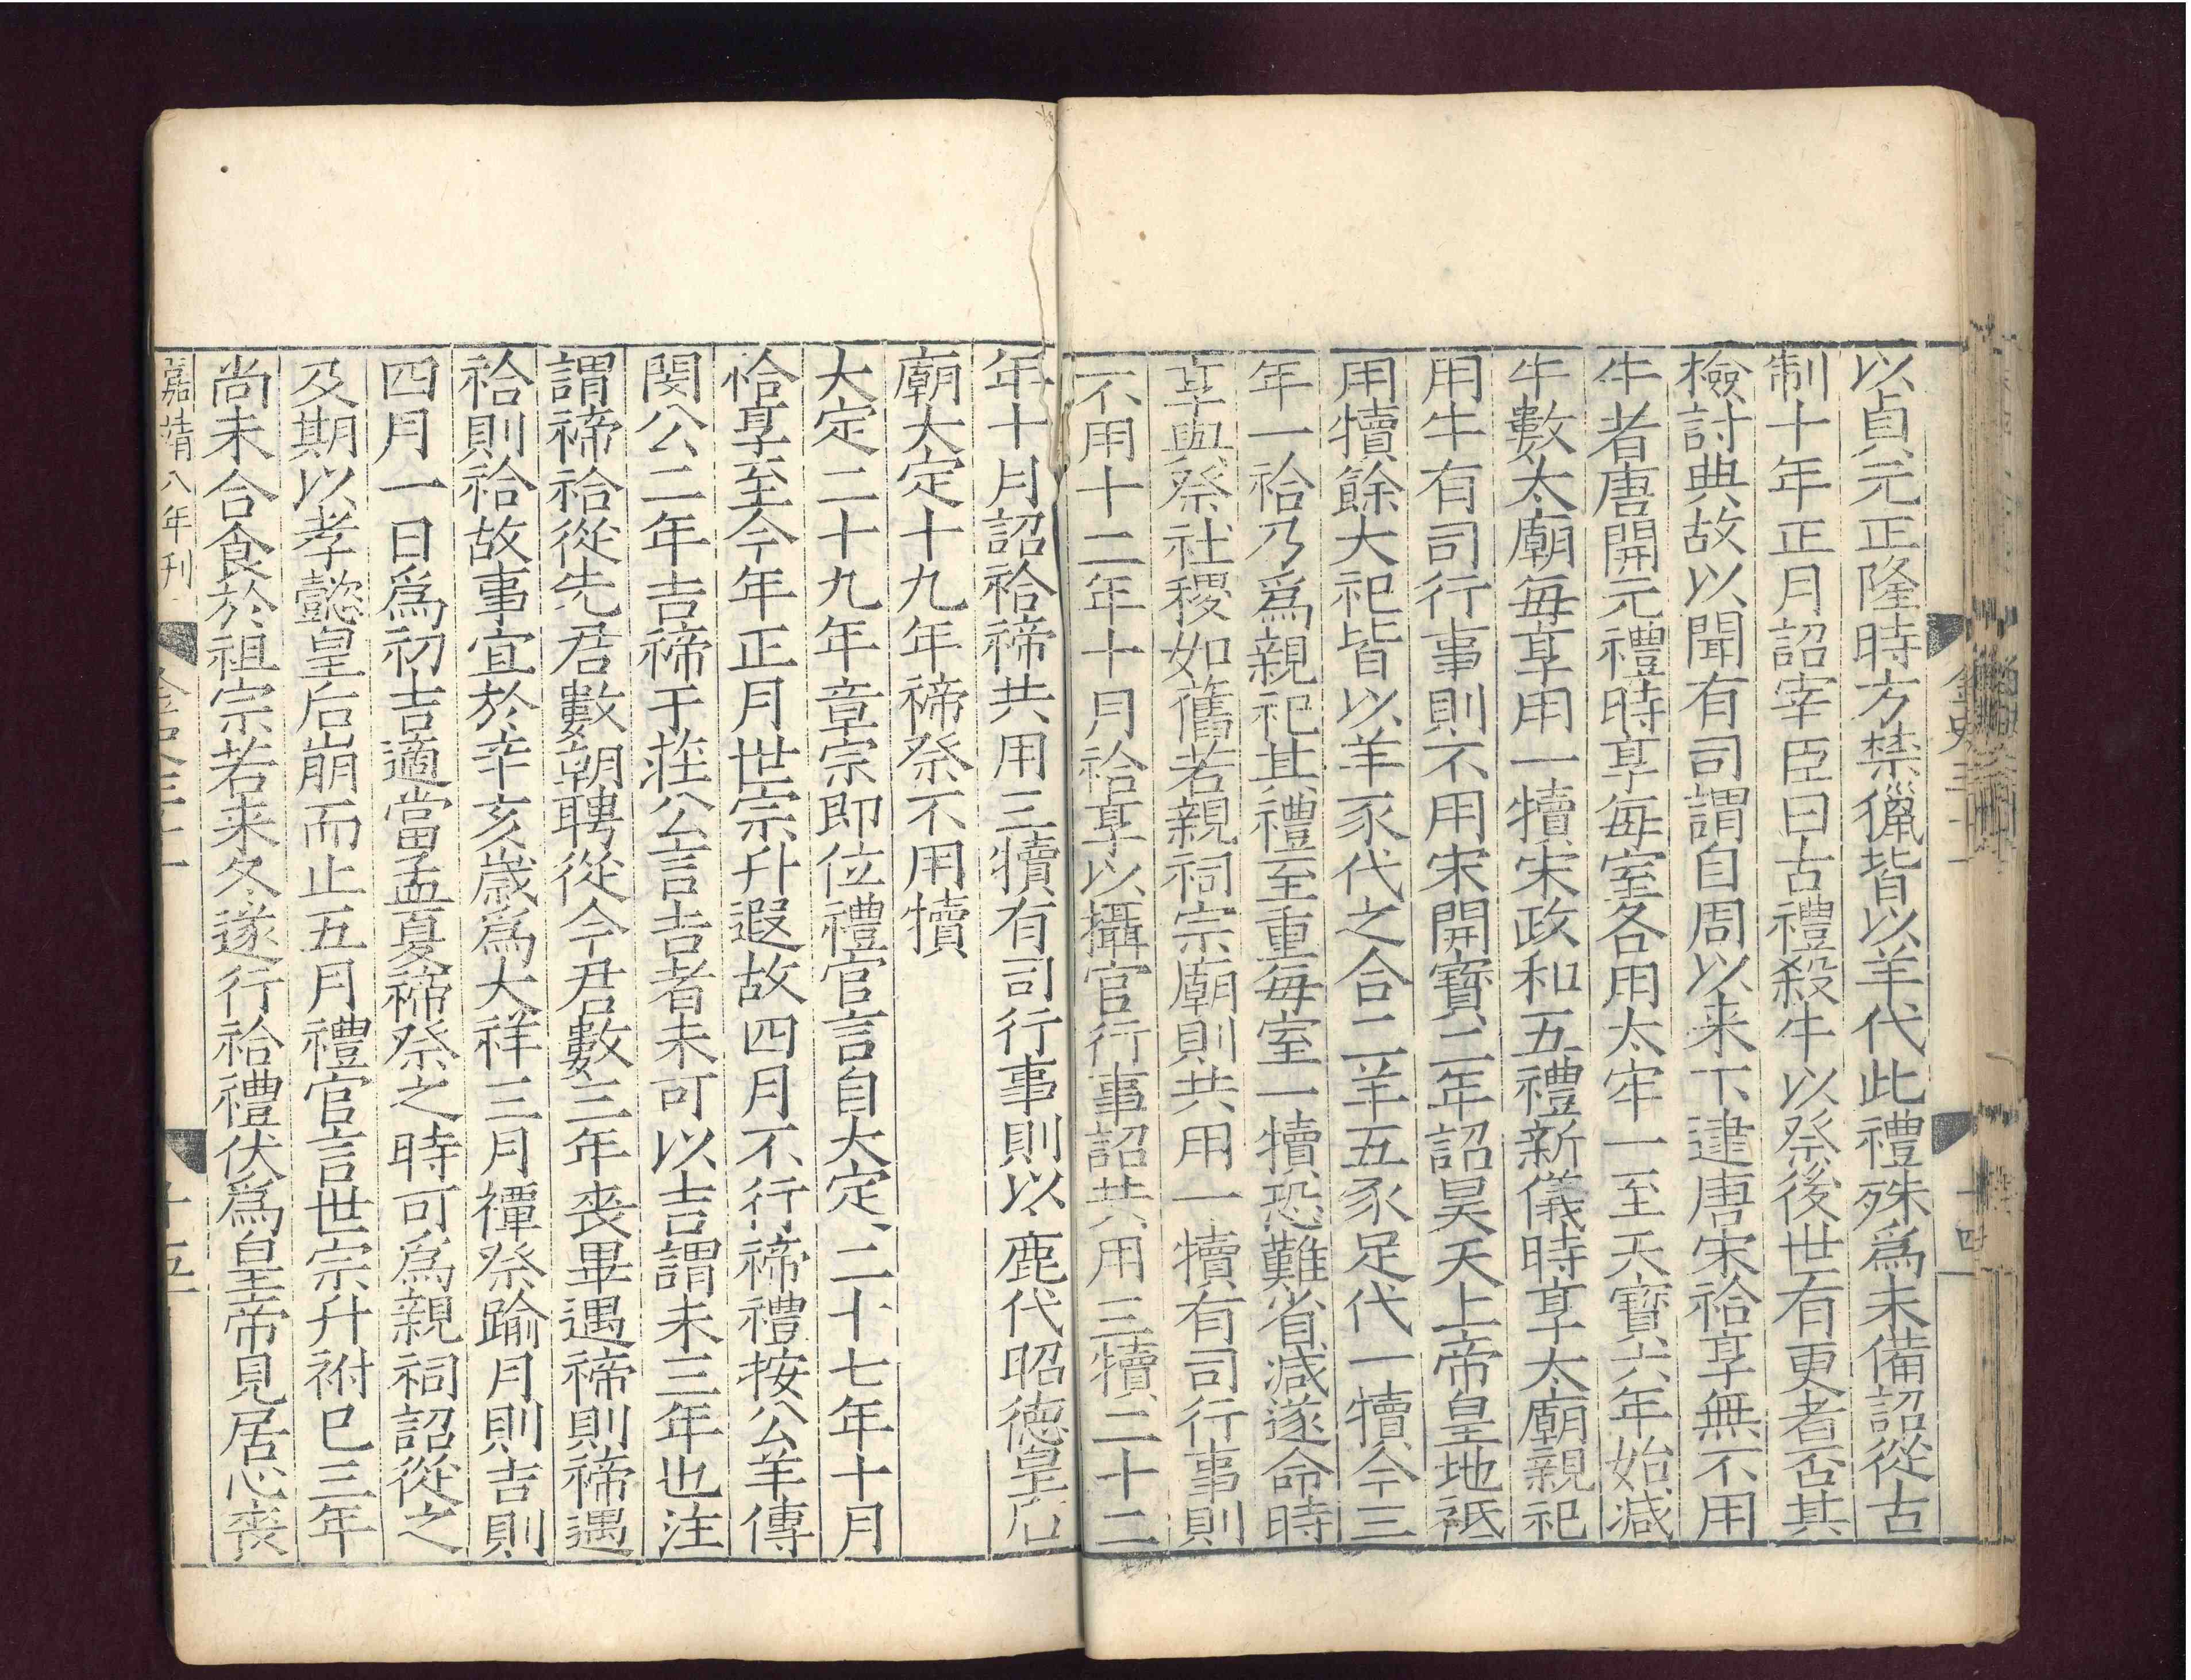 以貞元正隆時方禁獵皆以羊代此禮殊爲未備詔從古
制十年正月詔宰臣曰古禮殺牛以祭後世有更者否其
檢討典故以聞有司謂自周以来下逮唐宋祫享無不用
牛者唐開元禮時享每室各用太牢一至天寶六年始減
牛數太廟每享用一犢宋政和五禮新儀時享太廟親祀
用牛有司行事則不用宋開寶二年詔昊天上帝皇地祇
用犢餘大祀皆以羊豕代之合二羊五豕足代一犢今三
年一祫乃爲親祀其禮至重每室一犢恐難省減遂命時
享與祭社稷如舊若親祠宗廟則共用一犢有司行事則
不用十二年十月祫享以攝官行事詔共用三犢二十二
年十月詔祫禘共用三犢有司行事則以鹿代昭德皇后
廟大定十九年禘祭不用犢
大定二十九年章宗即位禮官言自大定二十七年十月
恰享至今年正月世宗升遐故四月不行禘禮按公羊傳
閔公二年吉禘于莊公言吉者未可以吉謂未三年也注
謂禘祫從先君數朝聘從今君數三年喪畢遇禘則禘遇
祫則祫故事宜於辛亥歲爲大祥三月禫祭踰月則吉則
四月一日爲初吉適當孟夏禘祭之時可爲親祠詔從之
及期以孝懿皇后崩而止五月禮官言世宗升祔已三年
尚未合食於祖宗若来冬遂行祫禮伏爲皇帝見居心喪
嘉靖八年刊
十五